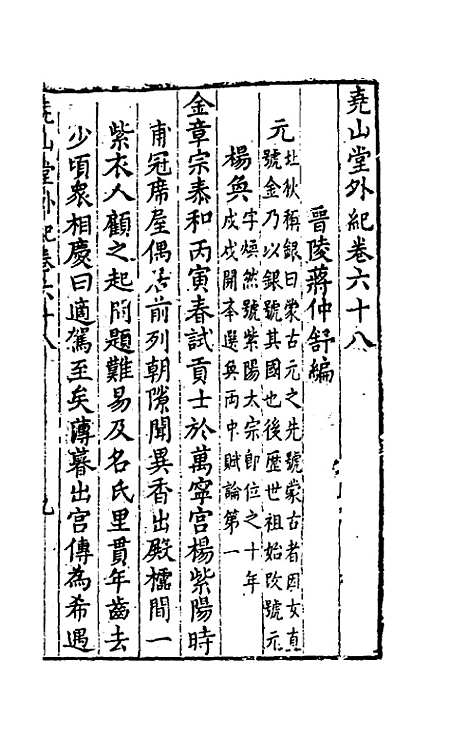 堯山堂外紀卷六十八
晉陵蔣仲舒編
元
北狄稱銀曰蒙古元之先號蒙古者因女直
號金乃以銀號其國也後歷世祖始改號元
楊奐
字煥然號紫陽太宗即位之十年
戊戌開本選奐兩中賦論第一
金章宗泰和丙寅春試貢士於萬寧宮楊紫陽時
甫冠席屋偶居前列朝隙聞異香出殿櫺間一
紫衣人顧之起問題難易及名氏里貫年齒去
少頃衆相慶曰適駕至矣薄暮出宮傳為希遇
堯山堂外紀卷六十八